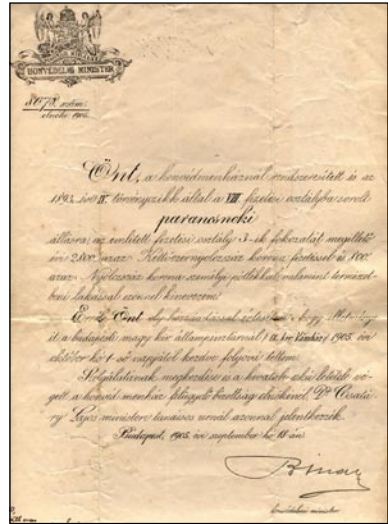 HONVÉDELMI MINISTER
szám
elnöki 1905.
Önt, a honvédmenháznál rendszeresített és az
1893. évi IV. törvényczikk által a VIII fizetési osztályba sorolt
parancsnoki
állásra, az említett fizetési osztály 3-ik fokozatát megillető
évi 2800 azaz Kettőezernyolczszáz korona fizetéssel és 800
azaz Nyolczszáz korona személyi pótlékkal, valamint természet-
beni lakással ezennel kinevezem.
Erről Önt oly hozzáadással értesítem, hogy illetményeit
a budapesti magy. kir. állampénztárnál 1905. évi
október hó 1-ső napjától kezdve folyóvá tettem.
Szolgálatának megkezdése és a hivatali eskü letétele vé-
gett a honvéd menház felügyelő bizottság elnökénél Dr Csatá-
ry Lajos ministeri tanácsos urnál azonnal jelentkezzék.
Budapest, 1905. évi szeptember hó 18-án.
honvédelmi minister